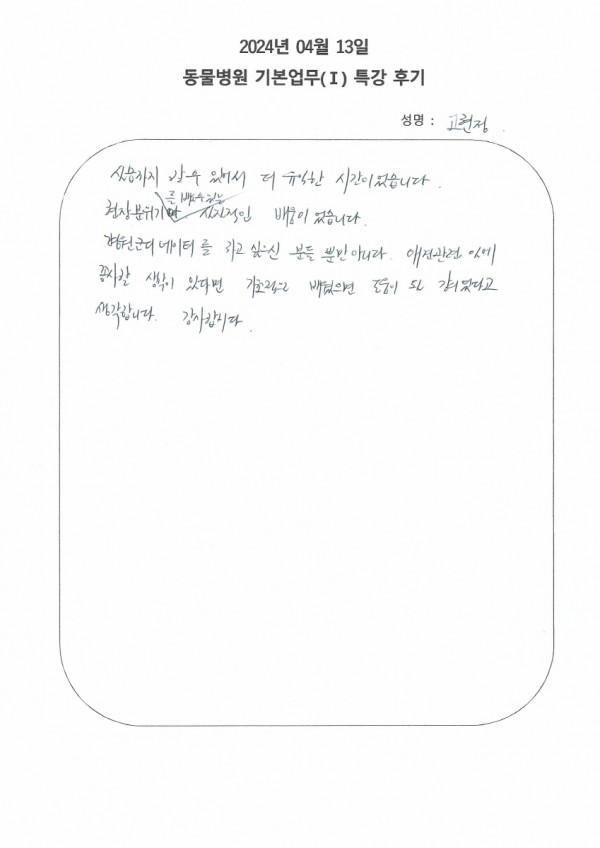 2024년 04월 13일
동물병원 기본업무(Ⅰ) 특강 후기
성명 : 고현정
알 수 있어서 더 유익한 시간이었습니다.
를 배울수있는
현장분위기 실질적인 배움이 었습니다.
병원코디네이터를 하고 싶으신 분들 뿐만아니라. 애견관련 일에
종사할 생각이 있다면 기초적으로 배웠으면 도움이 될 강의 였다고
생각합니다. 감사합니다.